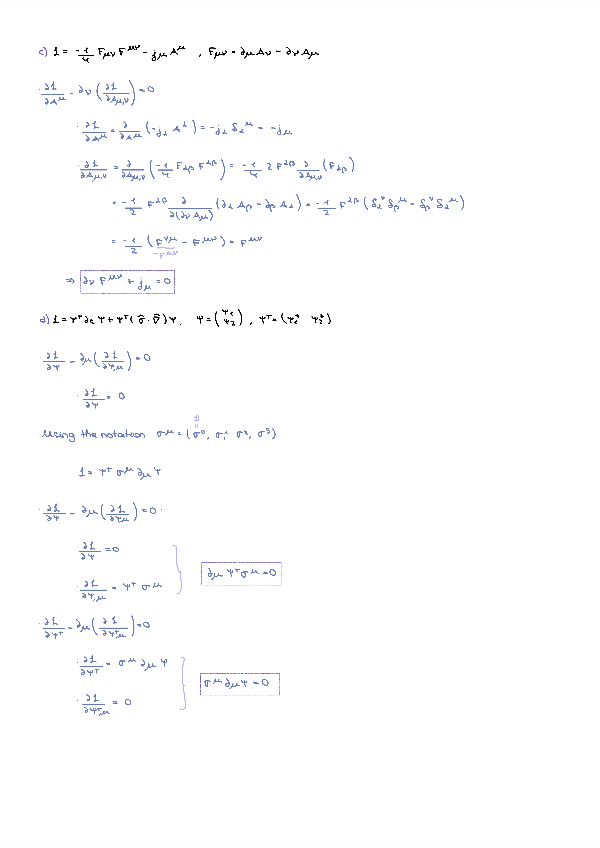 c) ℒ = -1/4 F_μν F^μν - j_μ A^μ , F_μν = ∂_μ A_ν - ∂_ν A_μ
· ∂ℒ/∂A^μ - ∂_ν (∂ℒ/∂A_μ,ν) = 0
· ∂ℒ/∂A^μ = ∂/∂A^μ (-j_α A^α) = -j_α δ_α^μ = -j_μ
· ∂ℒ/∂A_μ,ν = ∂/∂A_μ,ν (-1/4 F_αβ F^αβ) = -1/4 2 F^αβ ∂/∂A_μ,ν (F_αβ)
= -1/2 F^αβ ∂/∂(∂_ν A_μ) (∂_α A_β - ∂_β A_α) = -1/2 F^αβ (δ_α^ν δ_β^μ - δ_β^ν δ_α^μ)
= -1/2 (F^νμ - F^μν) = F^μν
-F^μν
⇒ ∂_ν F^μν + j_μ = 0
d) ℒ = Ψ† ∂_t Ψ + Ψ† (σ⃗ · ∇⃗) Ψ , Ψ = (Ψ_1 Ψ_2) , Ψ† = (Ψ_1* Ψ_2*)
· ∂ℒ/∂Ψ - ∂_μ (∂ℒ/∂Ψ,μ) = 0
· ∂ℒ/∂Ψ = 0
𝟙
=
·Using the notation σ^μ = (σ^0, σ^1, σ^2, σ^3)
ℒ = Ψ† σ^μ ∂_μ Ψ
· ∂ℒ/∂Ψ - ∂_μ (∂ℒ/∂Ψ,μ) = 0 ·
∂ℒ/∂Ψ = 0
∂_μ Ψ† σ^μ = 0
· ∂ℒ/∂Ψ,μ = Ψ† σ^μ
· ∂ℒ/∂Ψ† - ∂_μ (∂ℒ/∂Ψ†,μ) = 0
· ∂ℒ/∂Ψ† = σ^μ ∂_μ Ψ
σ^μ ∂_μ Ψ = 0
· ∂ℒ/∂Ψ†,μ = 0